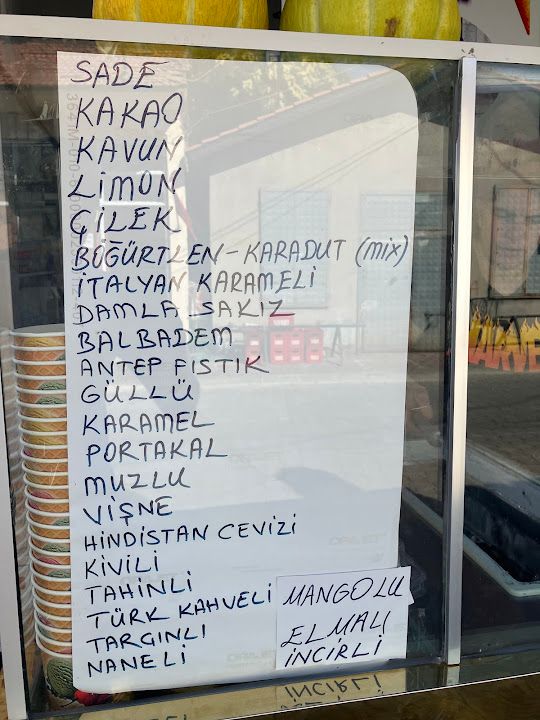 SADE
KAKAO
KAVUN
LİMON
ÇİLEK
BÖĞÜRTLEN-KARADUT (mix)
İTALYAN KARAMELİ
DAMLA SAKIZ
BALBADEM
ANTEP FISTIK
GÜLLÜ
KARAMEL
PORTAKAL
MUZLU
VİŞNE
HİNDİSTAN CEVİZİ
KİVİLİ
TAHİNLİ
TÜRK KAHVELİ
TARÇINLI
NANELİ
MANGOLU
ELMALI
İNCİRLİ